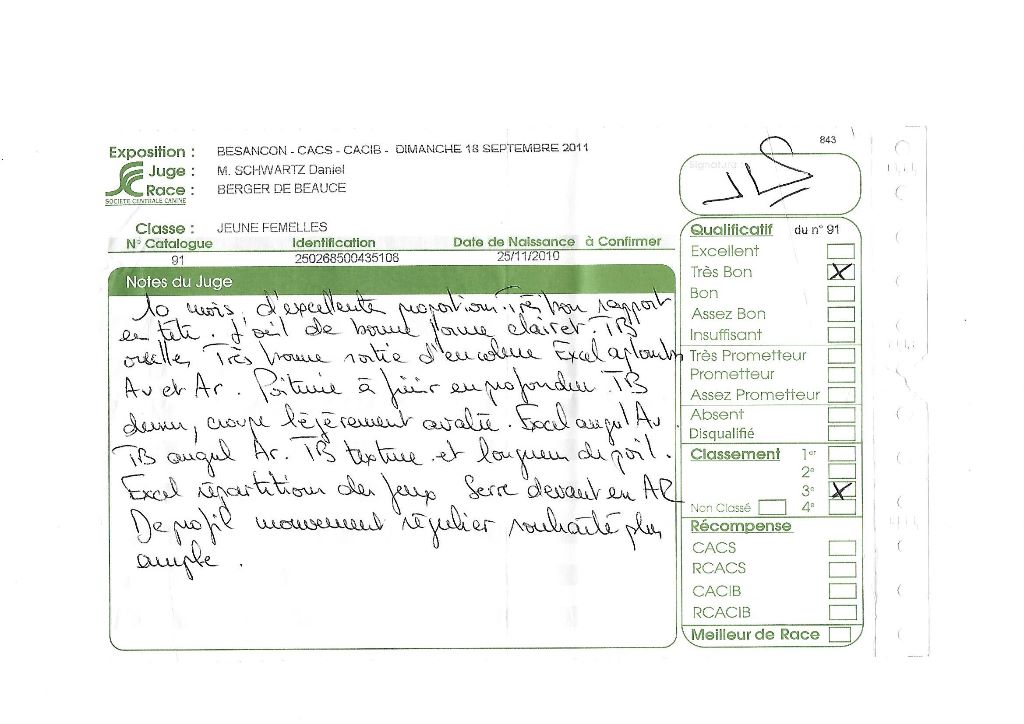 843
Exposition : BESANCON - CACS - CACIB - DIMANCHE 18 SEPTEMBRE 2011
Juge : M. SCHWARTZ Daniel
Race : BERGER DE BEAUCE
SOCIETE CENTRALE CANINE
Signature
Classe : JEUNE FEMELLES
N° Catalogue Identification Date de Naissance à Confirmer
91 250268500435108 25/11/2010
Notes du Juge
10 mois, d'excellente proportion. Très bon rapport
en tête. L'oeil de bonne forme clairet. TB
oreilles, Très bonne sortie d'encolure Excel aplombs
Av et Ar. Poitrine à finir en profondeur TB
dessus, croupe légèrement avalée. Excel angul Av.
TB angul Ar. TB texture et longueur du poil.
Excel répartition des feux Serre devant en AR
De profil mouvement régulier souhaité plus
ample.
Qualificatif du n° 91
Excellent
Très Bon X
Bon
Assez Bon
Insuffisant
Très Prometteur
Prometteur
Assez Prometteur
Absent
Disqualifié
Classement 1er
2e
3e X
Non Classé 4e
Récompense
CACS
RCACS
CACIB
RCACIB
Meilleur de Race